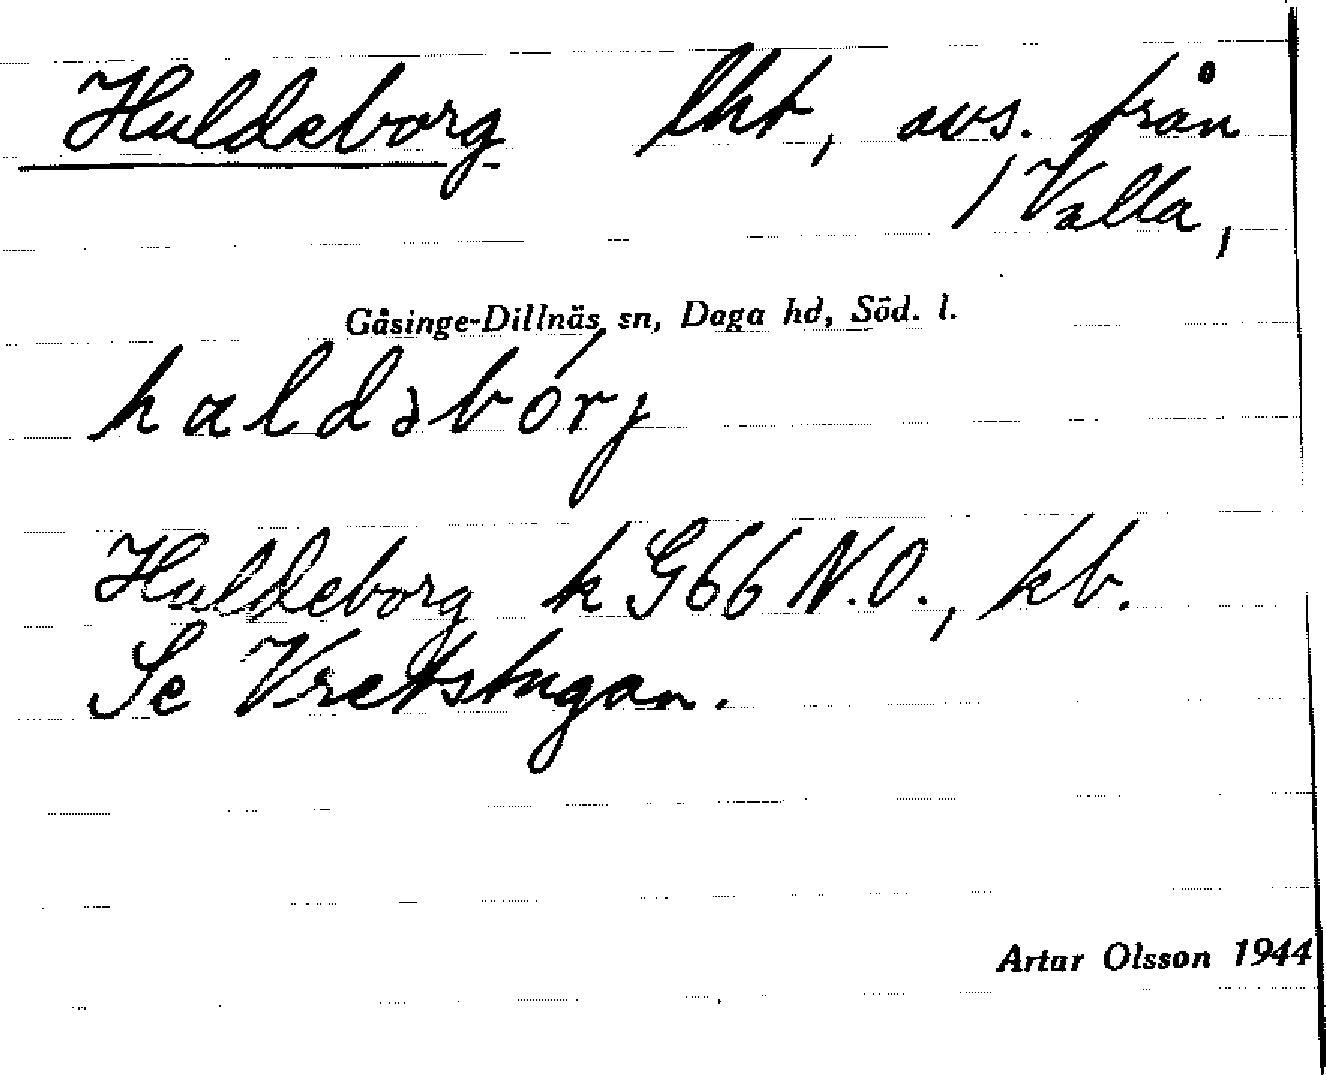 Huldeborg lht, avs. från
/ Valla,
Gåsinge-Dillnäs sn, Daga hd, Söd. l.
haldəbórj
Huldeborg k G66 N.O., kb.
Se Vretstugan.
Artur Olsson 1944